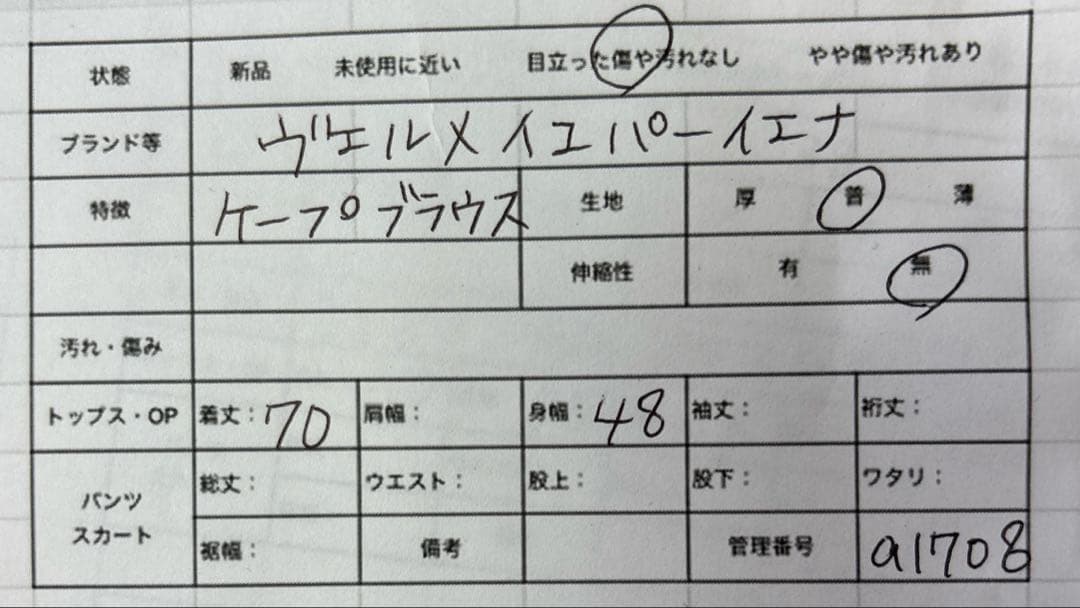 状態 新品 未使用に近い 目立った傷や汚れなし やや傷や汚れあり
ブランド等 ヴェルメイユパーイエナ
特徴 ケープブラウス 生地 厚 普 薄
伸縮性 有 無
汚れ・傷み
トップス・OP 着丈：70 肩幅： 身幅：48 袖丈： 裄丈：
パンツ スカート 総丈： ウエスト： 股上： 股下： ワタリ：
裾幅： 備考 管理番号 a1708